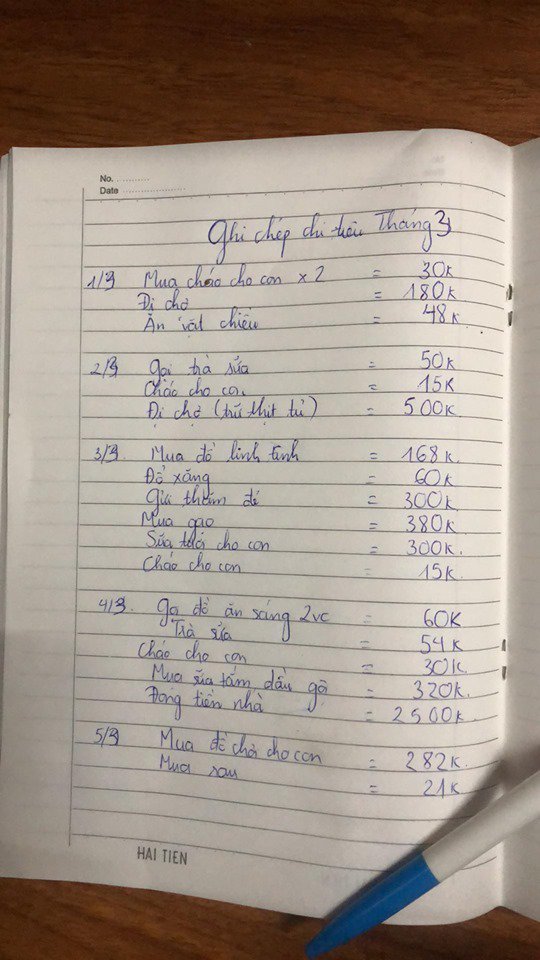 No.
Date
Ghi chép chi tiêu Tháng 3
1/3 Mua cháo cho con x 2 = 30K
Đi chợ = 180K
Ăn vặt chiều = 48K
2/3 Gọi trà sữa = 50K
Cháo cho con = 15K
Đi chợ (trữ thịt tủ) = 500K
3/3 Mua đồ linh tinh = 168K
Đổ xăng = 60K
Gửi thăm đẻ = 300K
Mua gạo = 380K
Sữa tươi cho con = 300K
Cháo cho con = 15K
4/3 Gọi đồ ăn sáng 2vc = 60K
Trà sữa = 54K
Cháo cho con = 30K
Mua sữa tắm dầu gội = 320K
Đóng tiền nhà = 2500K
5/3 Mua đồ chơi cho con = 282K
Mua rau = 21K
HAI TIEN